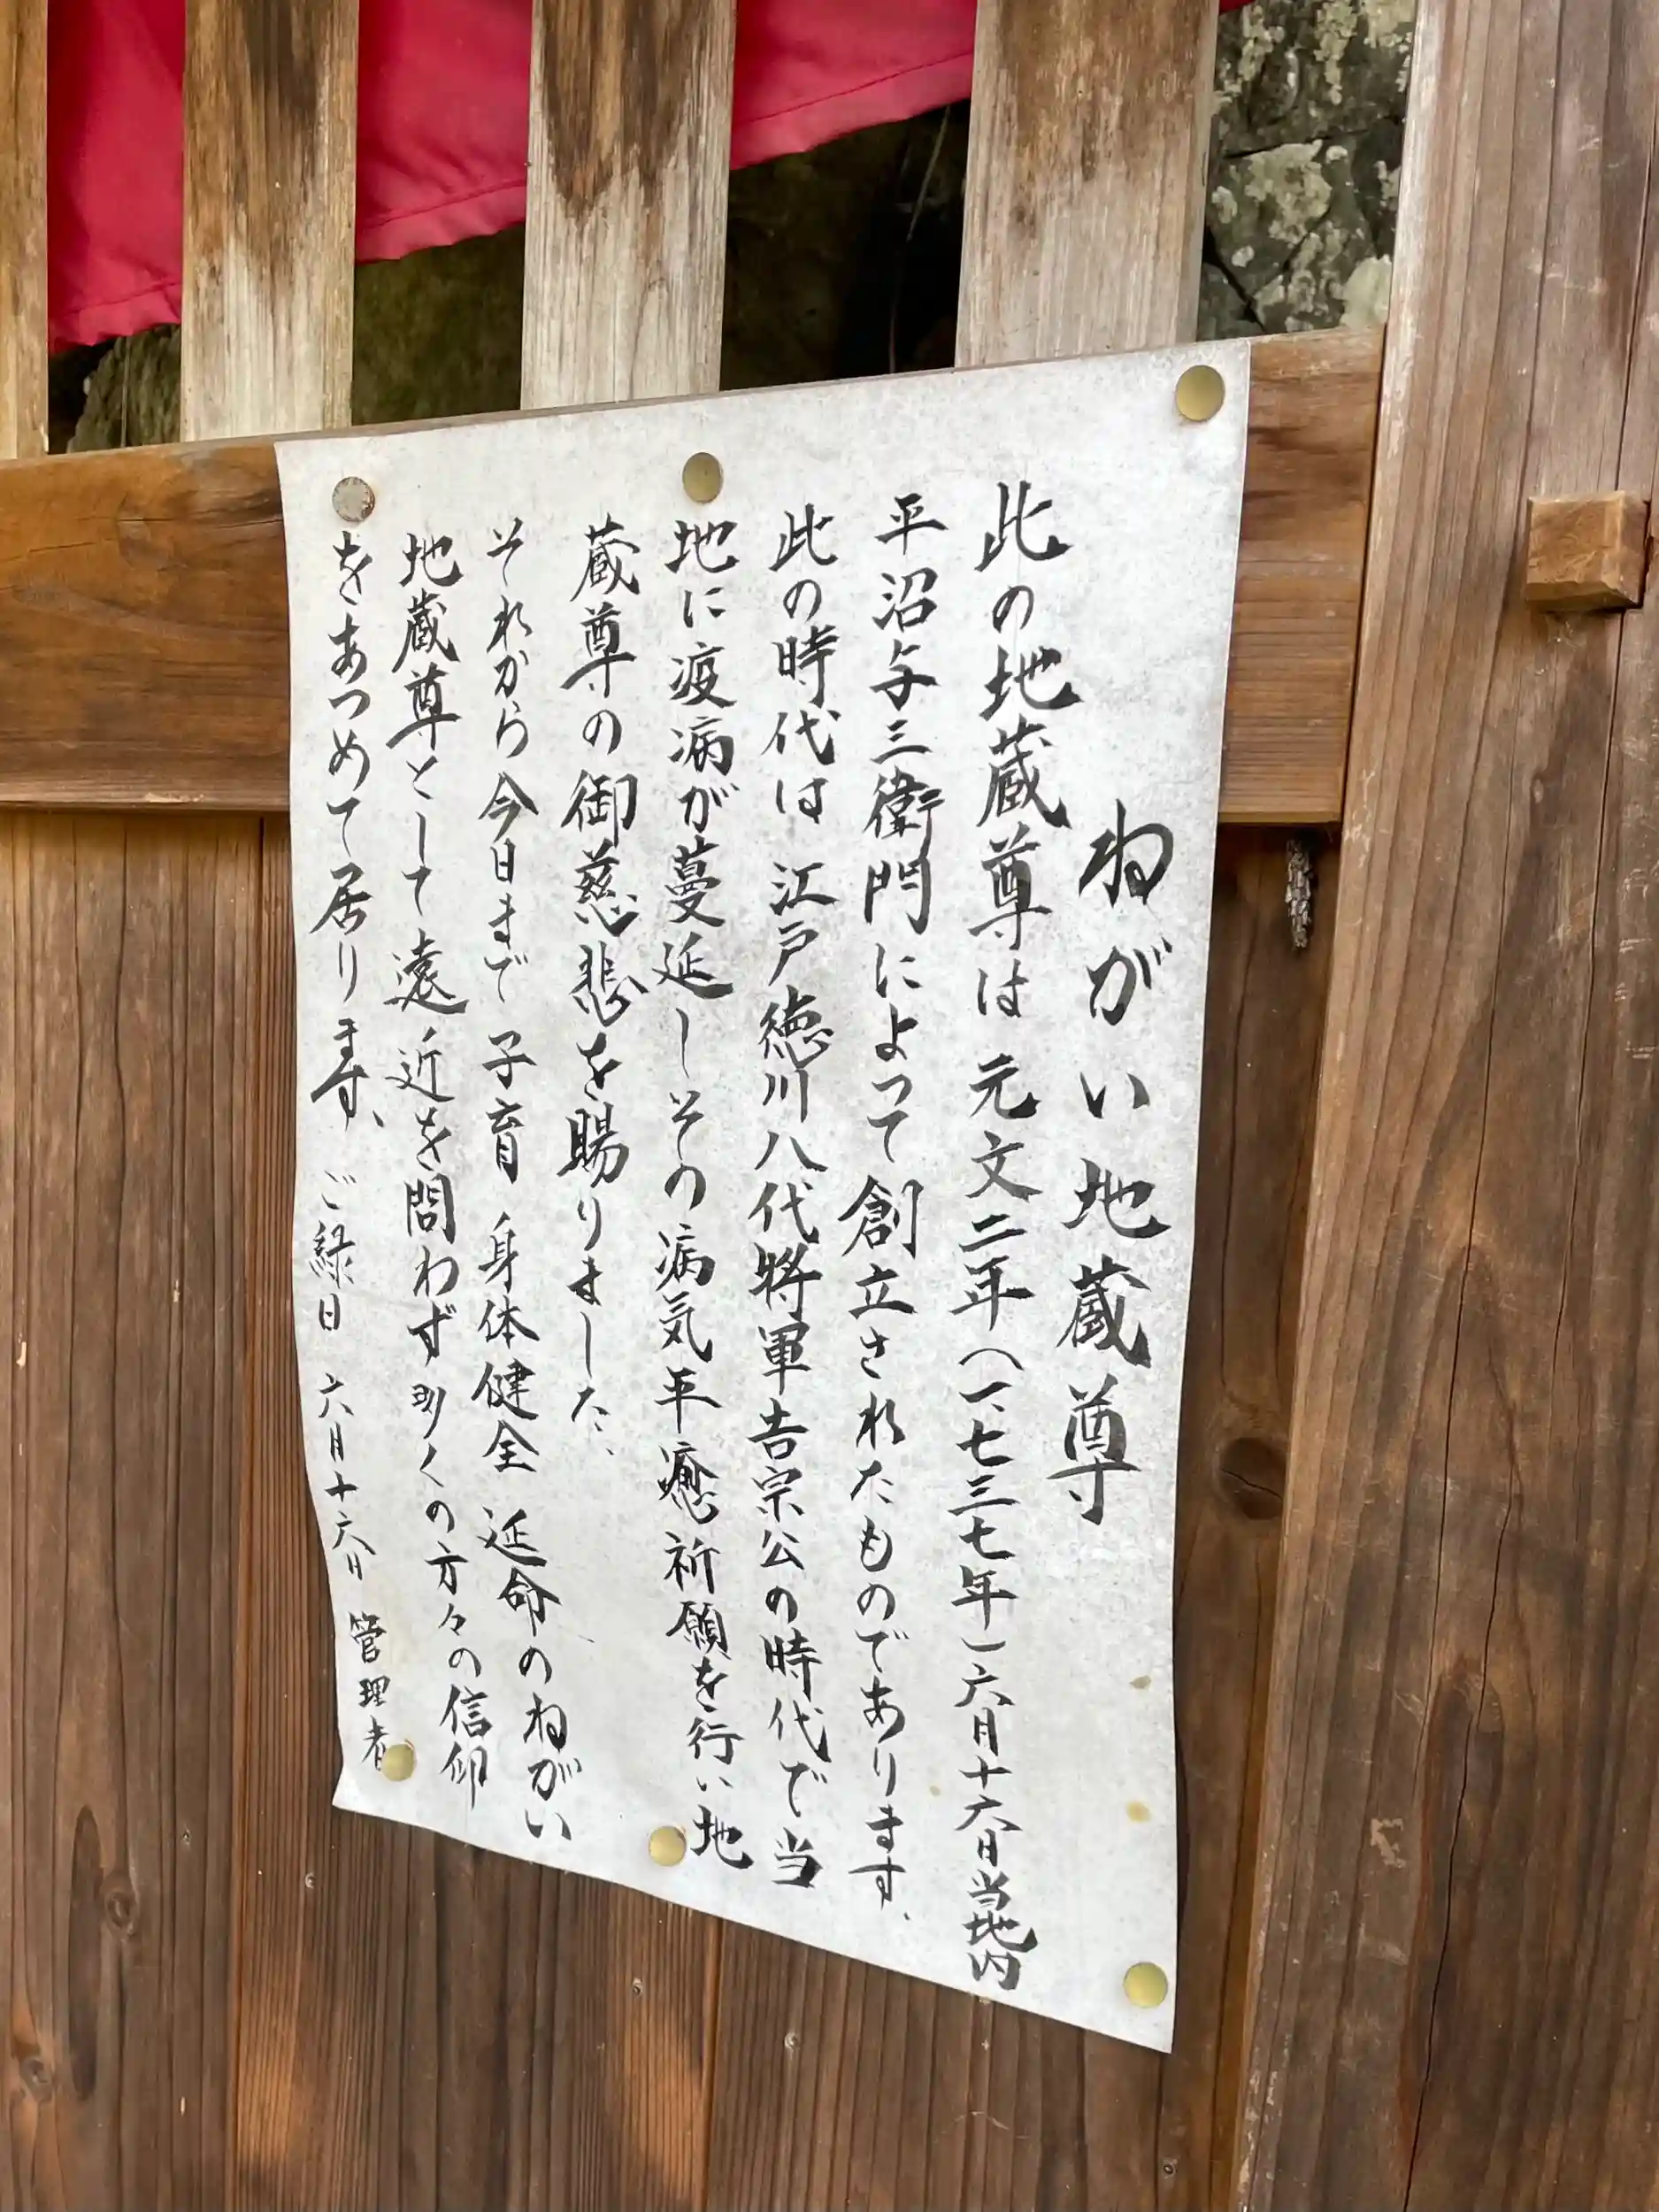 ねがい地蔵尊
此の地蔵尊は 元文二年(一、七三七年)六月十六日当地内
平沼与三衛門によって 創立されたものであります、
此の時代は 江戸徳川八代将軍吉宗公の時代で当
地に疫病が蔓延しその病気平癒祈願を行い地
蔵尊の御慈悲を賜りました、
それから今日まで 子育 身体健全 延命のねがい
地蔵尊として 遠近を問わず 多くの方々の信仰
をあつめて居ります、 ご縁日 六月十六日 管理者